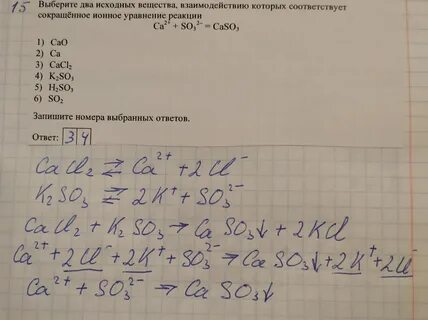 15 Выберите два исходных вещества, взаимодействию которых соответствует
сокращённое ионное уравнение реакции
Ca²⁺ + SO₃²⁻ = CaSO₃
1) CaO
2) Ca
3) CaCl₂
4) K₂SO₃
5) H₂SO₃
6) SO₂
Запишите номера выбранных ответов.
Ответ: 3 4
CaCl₂ ⇄ Ca²⁺ + 2Cl⁻
K₂SO₃ ⇄ 2K⁺ + SO₃²⁻
CaCl₂ + K₂SO₃ → CaSO₃↓ + 2KCl
Ca²⁺ + 2Cl⁻ + 2K⁺ + SO₃²⁻ → CaSO₃↓ + 2K⁺ + 2Cl⁻
Ca²⁺ + SO₃²⁻ → CaSO₃↓